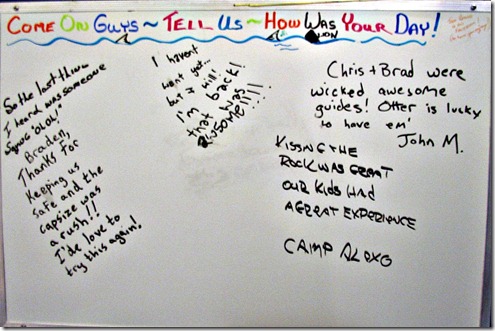 COME ON GUYS ~ TELL US ~ HOW WAS YOUR DAY!
So the last thing
I heard was someone
Braden,
Thanks for
Keeping us
safe and the
capsize was
a rush!!
I'de love to
try this again!
I havent
went yet...
but I will!
I'm back!
that was
Awsome!!!!!
Chris + Brad were
wicked awesome
guides! Otter is lucky
to have em'
John M.
KISSING THE
ROCK WAS GREAT
OUR KIDS HAD
A GREAT EXPERIENCE
CAMP